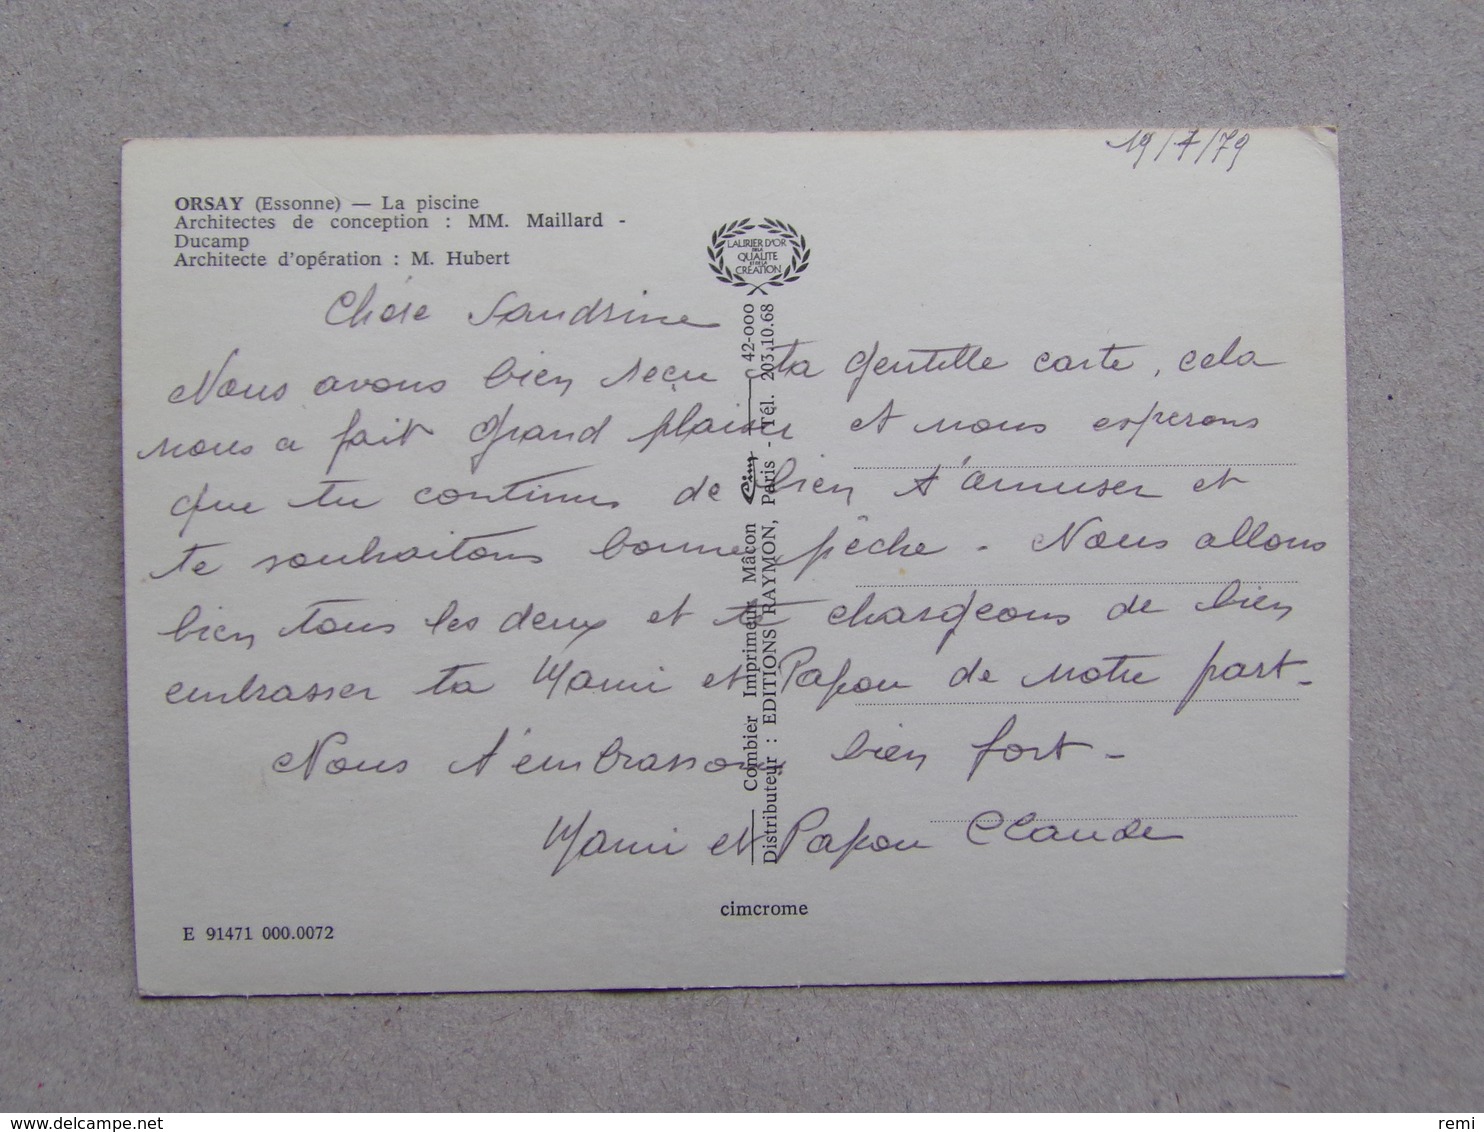 19/7/79
ORSAY (Essonne) — La piscine
Architectes de conception : MM. Maillard -
Ducamp
Architecte d'opération : M. Hubert
LAURIER D'OR
DE LA
QUALITE
ET DE LA
CREATION
Chère Sandrine
Nous avons bien reçu ta gentille carte, cela
nous a fait grand plaisir et nous esperons
que tu continus de bien t'amuser et
te souhaitons bonne pêche - Nous allons
bien tous les deux et te chargeons de bien
embrasser ta Mami et Papou de notre part -
Nous t'embrassons bien fort -
Mami et Papou Claude
Combier Imprimeur Mâcon Cim 42-000
Distributeur : EDITIONS RAYMON, Paris - Tél. 203.10.68
cimcrome
E 91471 000.0072
delcampe.net
remi